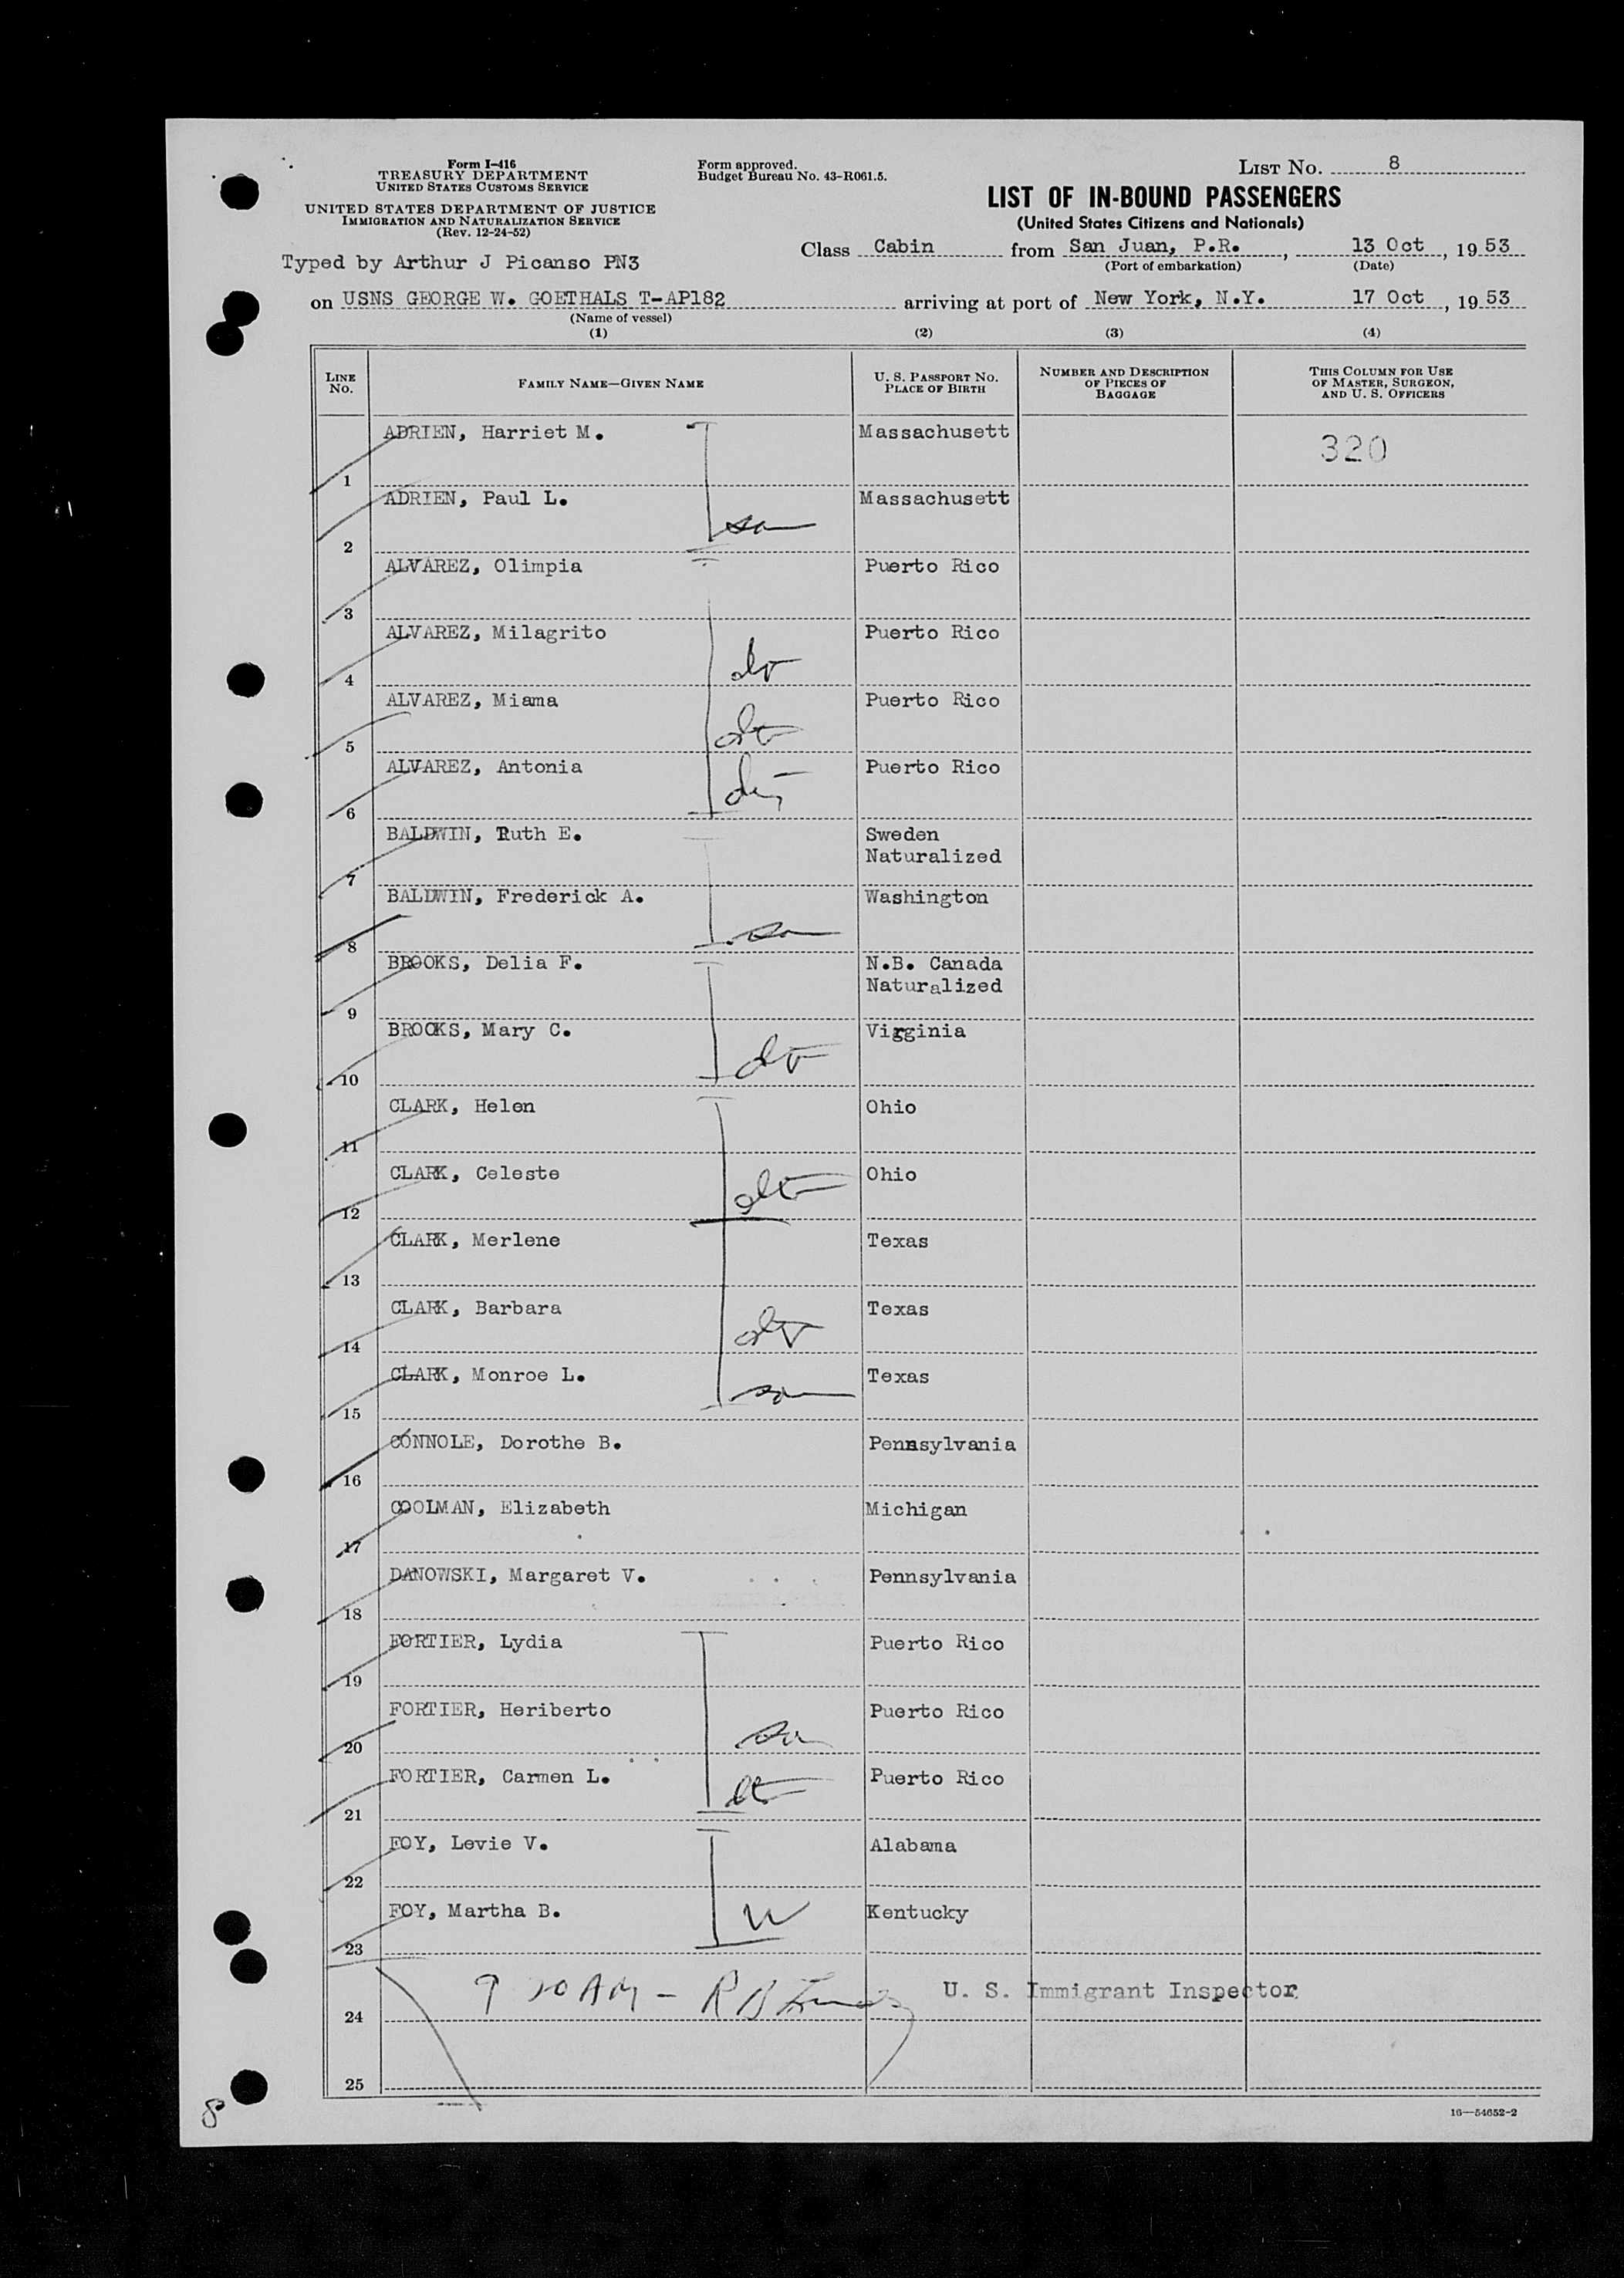 Form I-416
TREASURY DEPARTMENT
UNITED STATES CUSTOMS SERVICE
UNITED STATES DEPARTMENT OF JUSTICE
IMMIGRATION AND NATURALIZATION SERVICE
(Rev. 12-24-52)
Form approved.
Budget Bureau No. 43-R061.5.
LIST NO. 8
LIST OF IN-BOUND PASSENGERS
(United States Citizens and Nationals)
Class Cabin from San Juan, P.R., 13 Oct, 1953
(Port of embarkation) (Date)
Typed by Arthur J Picanso PN3
on USNS GEORGE W. GOETHALS T-AP182 arriving at port of New York, N.Y. 17 Oct, 1953
(Name of vessel)
(1) (2) (3) (4)
LINE NO. FAMILY NAME—GIVEN NAME U. S. PASSPORT NO. PLACE OF BIRTH NUMBER AND DESCRIPTION OF PIECES OF BAGGAGE THIS COLUMN FOR USE OF MASTER, SURGEON, AND U. S. OFFICERS
1 ADRIEN, Harriet M. Massachusett 320
2 ADRIEN, Paul L. Massachusett
3 ALVAREZ, Olimpia Puerto Rico
4 ALVAREZ, Milagrito Puerto Rico
5 ALVAREZ, Miama Puerto Rico
6 ALVAREZ, Antonia Puerto Rico
7 BALDWIN, Ruth E. Sweden Naturalized
8 BALDWIN, Frederick A. Washington
9 BROOKS, Delia F. N.B. Canada Naturalized
10 BROOKS, Mary C. Virginia
11 CLARK, Helen Ohio
12 CLARK, Celeste Ohio
13 CLARK, Merlene Texas
14 CLARK, Barbara Texas
15 CLARK, Monroe L. Texas
16 CONNOLE, Dorothe B. Pennsylvania
17 COOLMAN, Elizabeth Michigan
18 DANOWSKI, Margaret V. Pennsylvania
19 FORTIER, Lydia Puerto Rico
20 FORTIER, Heriberto Puerto Rico
21 FORTIER, Carmen L. Puerto Rico
22 FOY, Levie V. Alabama
23 FOY, Martha B. Kentucky
24 AM - R B U. S. Immigrant Inspector
25
8
16—54652-2